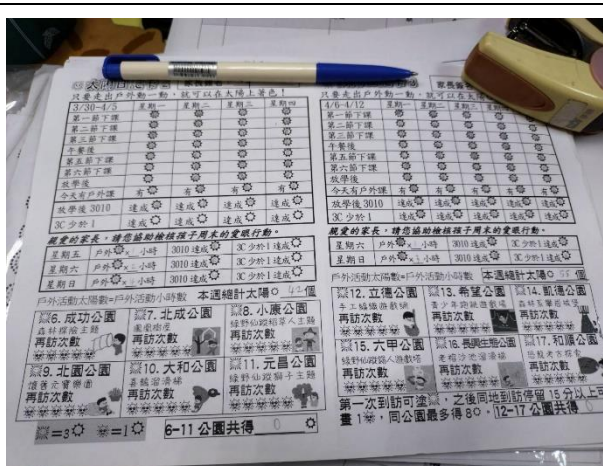 只要走出戶外動一動，就可以在太陽上著色！
3/30-4/5 星期一 星期二 星期三 星期四
第一節下課
第二節下課
第三節下課
午餐後
第五節下課
第六節下課
放學後
今天有戶外課 有 有 有 有
放學後 3010 達成 達成 達成 達成
3C 少於 1 達成 達成 達成 達成
親愛的家長，請您協助檢核孩子周末的愛眼行動。
星期五 戶外 x 小時 3010 達成 3C 少於 1 達成
星期六 戶外 x 小時 3010 達成 3C 少於 1 達成
星期日 戶外 x 小時 3010 達成 3C 少於 1 達成
戶外活動太陽數=戶外活動小時數 本週總計太陽 42 個
6. 成功公園
森林探險主題
再訪次數
7. 北成公園
再訪次數
8. 小康公園
綠野仙蹤稻草人主題
再訪次數
9. 北園公園
再訪次數
10. 大和公園
喜鵲溜滑梯
再訪次數
11. 元昌公園
綠野仙蹤獅子主題
再訪次數
=3 =1 6-11 公園共得 0
只要走出戶外動一動，就可以在太
4/6-4/12 星期一 星期二 星期三 星期四
第一節下課
第二節下課
第三節下課
午餐後
第五節下課
第六節下課
放學後
今天有戶外課 有 有 有 有
放學後 3010 達成 達成 達成 達成
3C 少於 1 達成 達成 達成 達成
親愛的家長，請您協助檢核孩子周末的愛眼行動。
星期六 戶外 x 小時 3010 達成 3C 少於 1 達成
星期日 戶外 x 小時 3010 達成 3C 少於 1 達成
戶外活動太陽數=戶外活動小時數 本週總計太陽 個
12. 立德公園
再訪次數
13. 希望公園
再訪次數
14. 凱德公園
再訪次數
15. 六甲公園
再訪次數
16. 長興生態公園
再訪次數
17. 和順公園
再訪次數
第一次到訪可塗，之後同地到訪停留 15 分以上可
畫 1，同公園最多得 8。12-17 公園共得